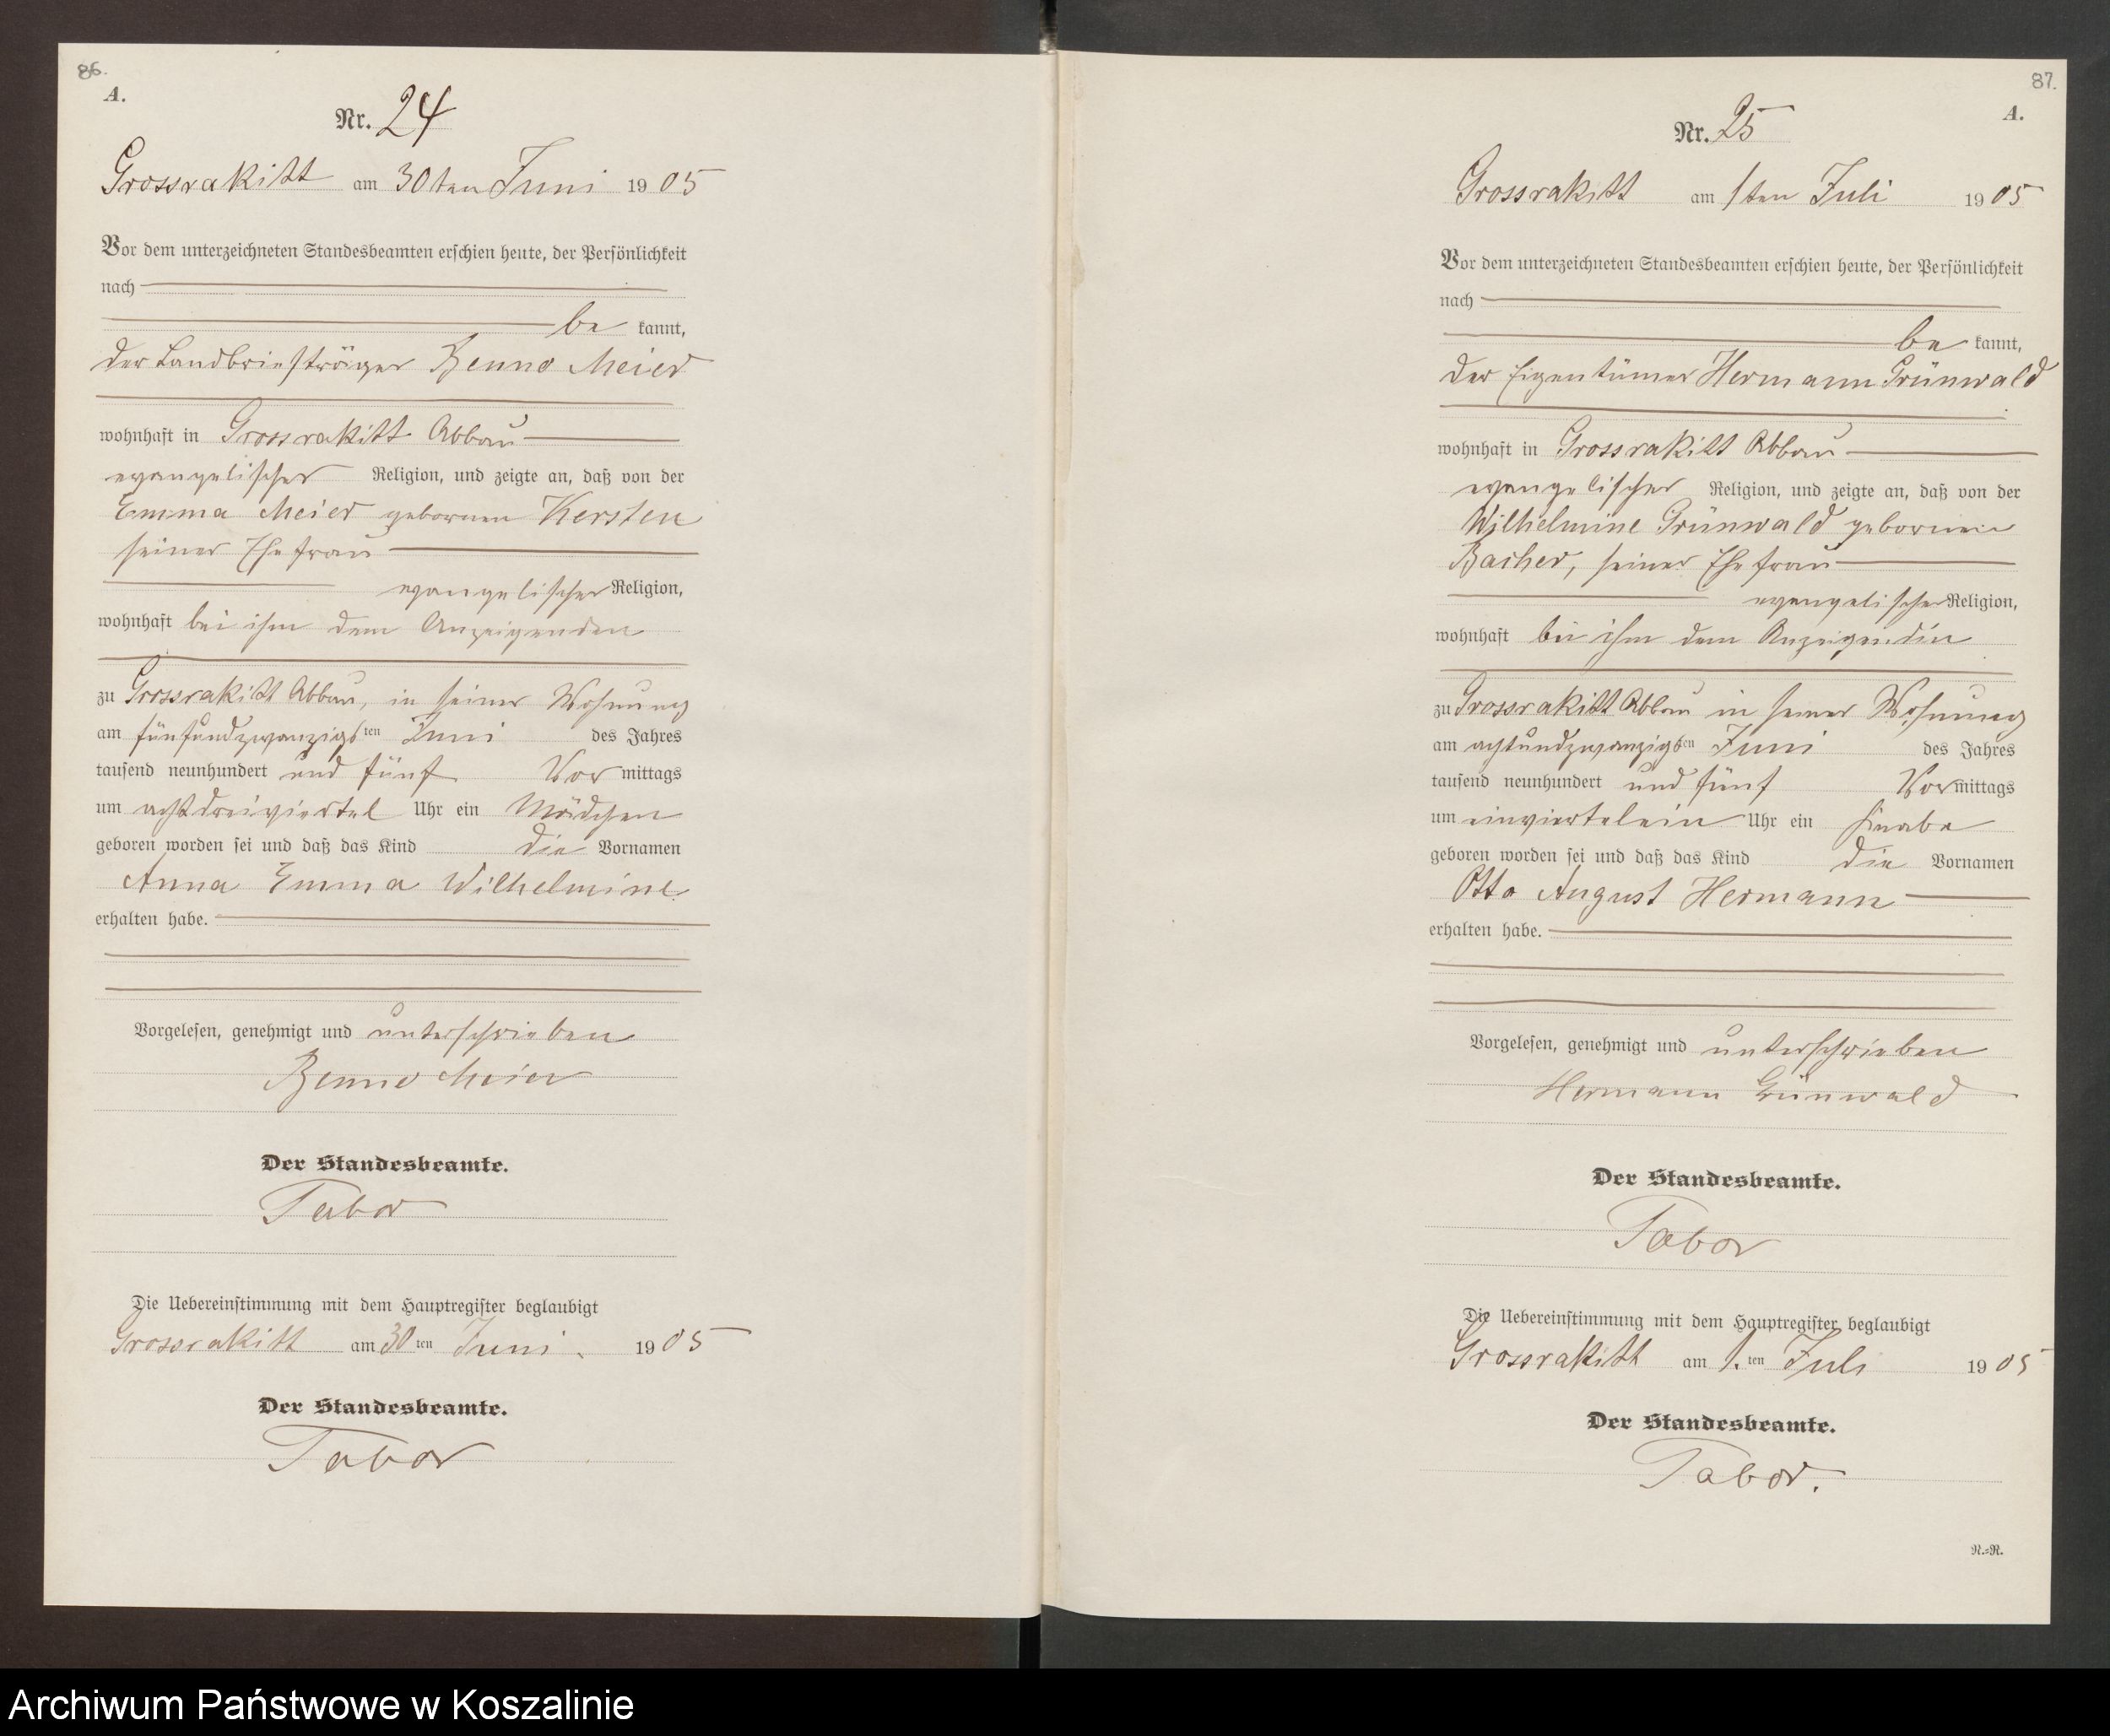 86.
A.
Nr. 24
Grossrakitt am 30ten Juni 1905
Vor dem unterzeichneten Standesbeamten erschien heute, der Persönlichkeit
nach
be kannt,
der Landbriefträger Benno Meier
wohnhaft in Grossrakitt Abbau
evangelischer Religion, und zeigte an, daß von der
Emma Meier geborenen Kersten
seiner Ehefrau
evangelischer Religion,
wohnhaft bei ihm dem Anzeigenden
zu Grossrakitt Abbau, in seiner Wohnung
am fünfundzwanzigsten Juni des Jahres
tausend neunhundert und fünf Vor mittags
um achtdreiviertel Uhr ein Mädchen
geboren worden sei und daß das Kind die Vornamen
Anna Emma Wilhelmine
erhalten habe.
Vorgelesen, genehmigt und unterschrieben
Benno Meier
Der Standesbeamte.
Tabor
Die Uebereinstimmung mit dem Hauptregister beglaubigt
Grossrakitt am 30ten Juni. 1905
Der Standesbeamte.
Tabor
87.
A.
Nr. 25
Grossrakitt am 1ten Juli 1905
Vor dem unterzeichneten Standesbeamten erschien heute, der Persönlichkeit
nach
be kannt,
der Eigentümer Hermann Grünwald
wohnhaft in Grossrakitt Abbau
evangelischer Religion, und zeigte an, daß von der
Wilhelmine Grünwald geborenen
Bacher, seiner Ehefrau
evangelischer Religion,
wohnhaft bei ihm dem Anzeigenden
zu Grossrakitt Abbau in seiner Wohnung
am achtundzwanzigsten Juni des Jahres
tausend neunhundert und fünf Vormittags
um einviertelein Uhr ein Knabe
geboren worden sei und daß das Kind die Vornamen
Otto August Hermann
erhalten habe.
Vorgelesen, genehmigt und unterschrieben
Hermann Grünwald
Der Standesbeamte.
Tabor
Die Uebereinstimmung mit dem Hauptregister beglaubigt
Grossrakitt am 1.ten Juli 1905
Der Standesbeamte.
Tabor.
R.=R.
Archiwum Państwowe w Koszalinie